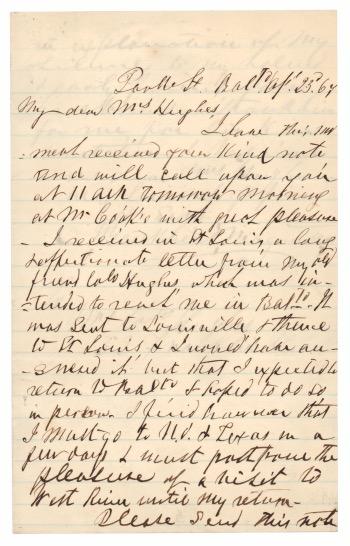 Park St. Balto. Apl. 23d. 67
My dear Mrs Hughes,
I have this mo-
=ment received your kind note
and will call upon you
at 11 oclk tomorrow morning
at Mr Cook's with great pleasure
- I received in St Louis a long
& affectionate letter from my old
friend Colo Hughes, which was in-
=tended to reach me in Balto. It
was sent to Louisville & thence
to St Louis & I would have an-
=swered it but that I expected to
return to Balto & hoped to do so
in person. I find however that
I must go to N.O. & Texas in a
few days & must postpone the
pleasure of a visit to
West River until my return-
Please send this note